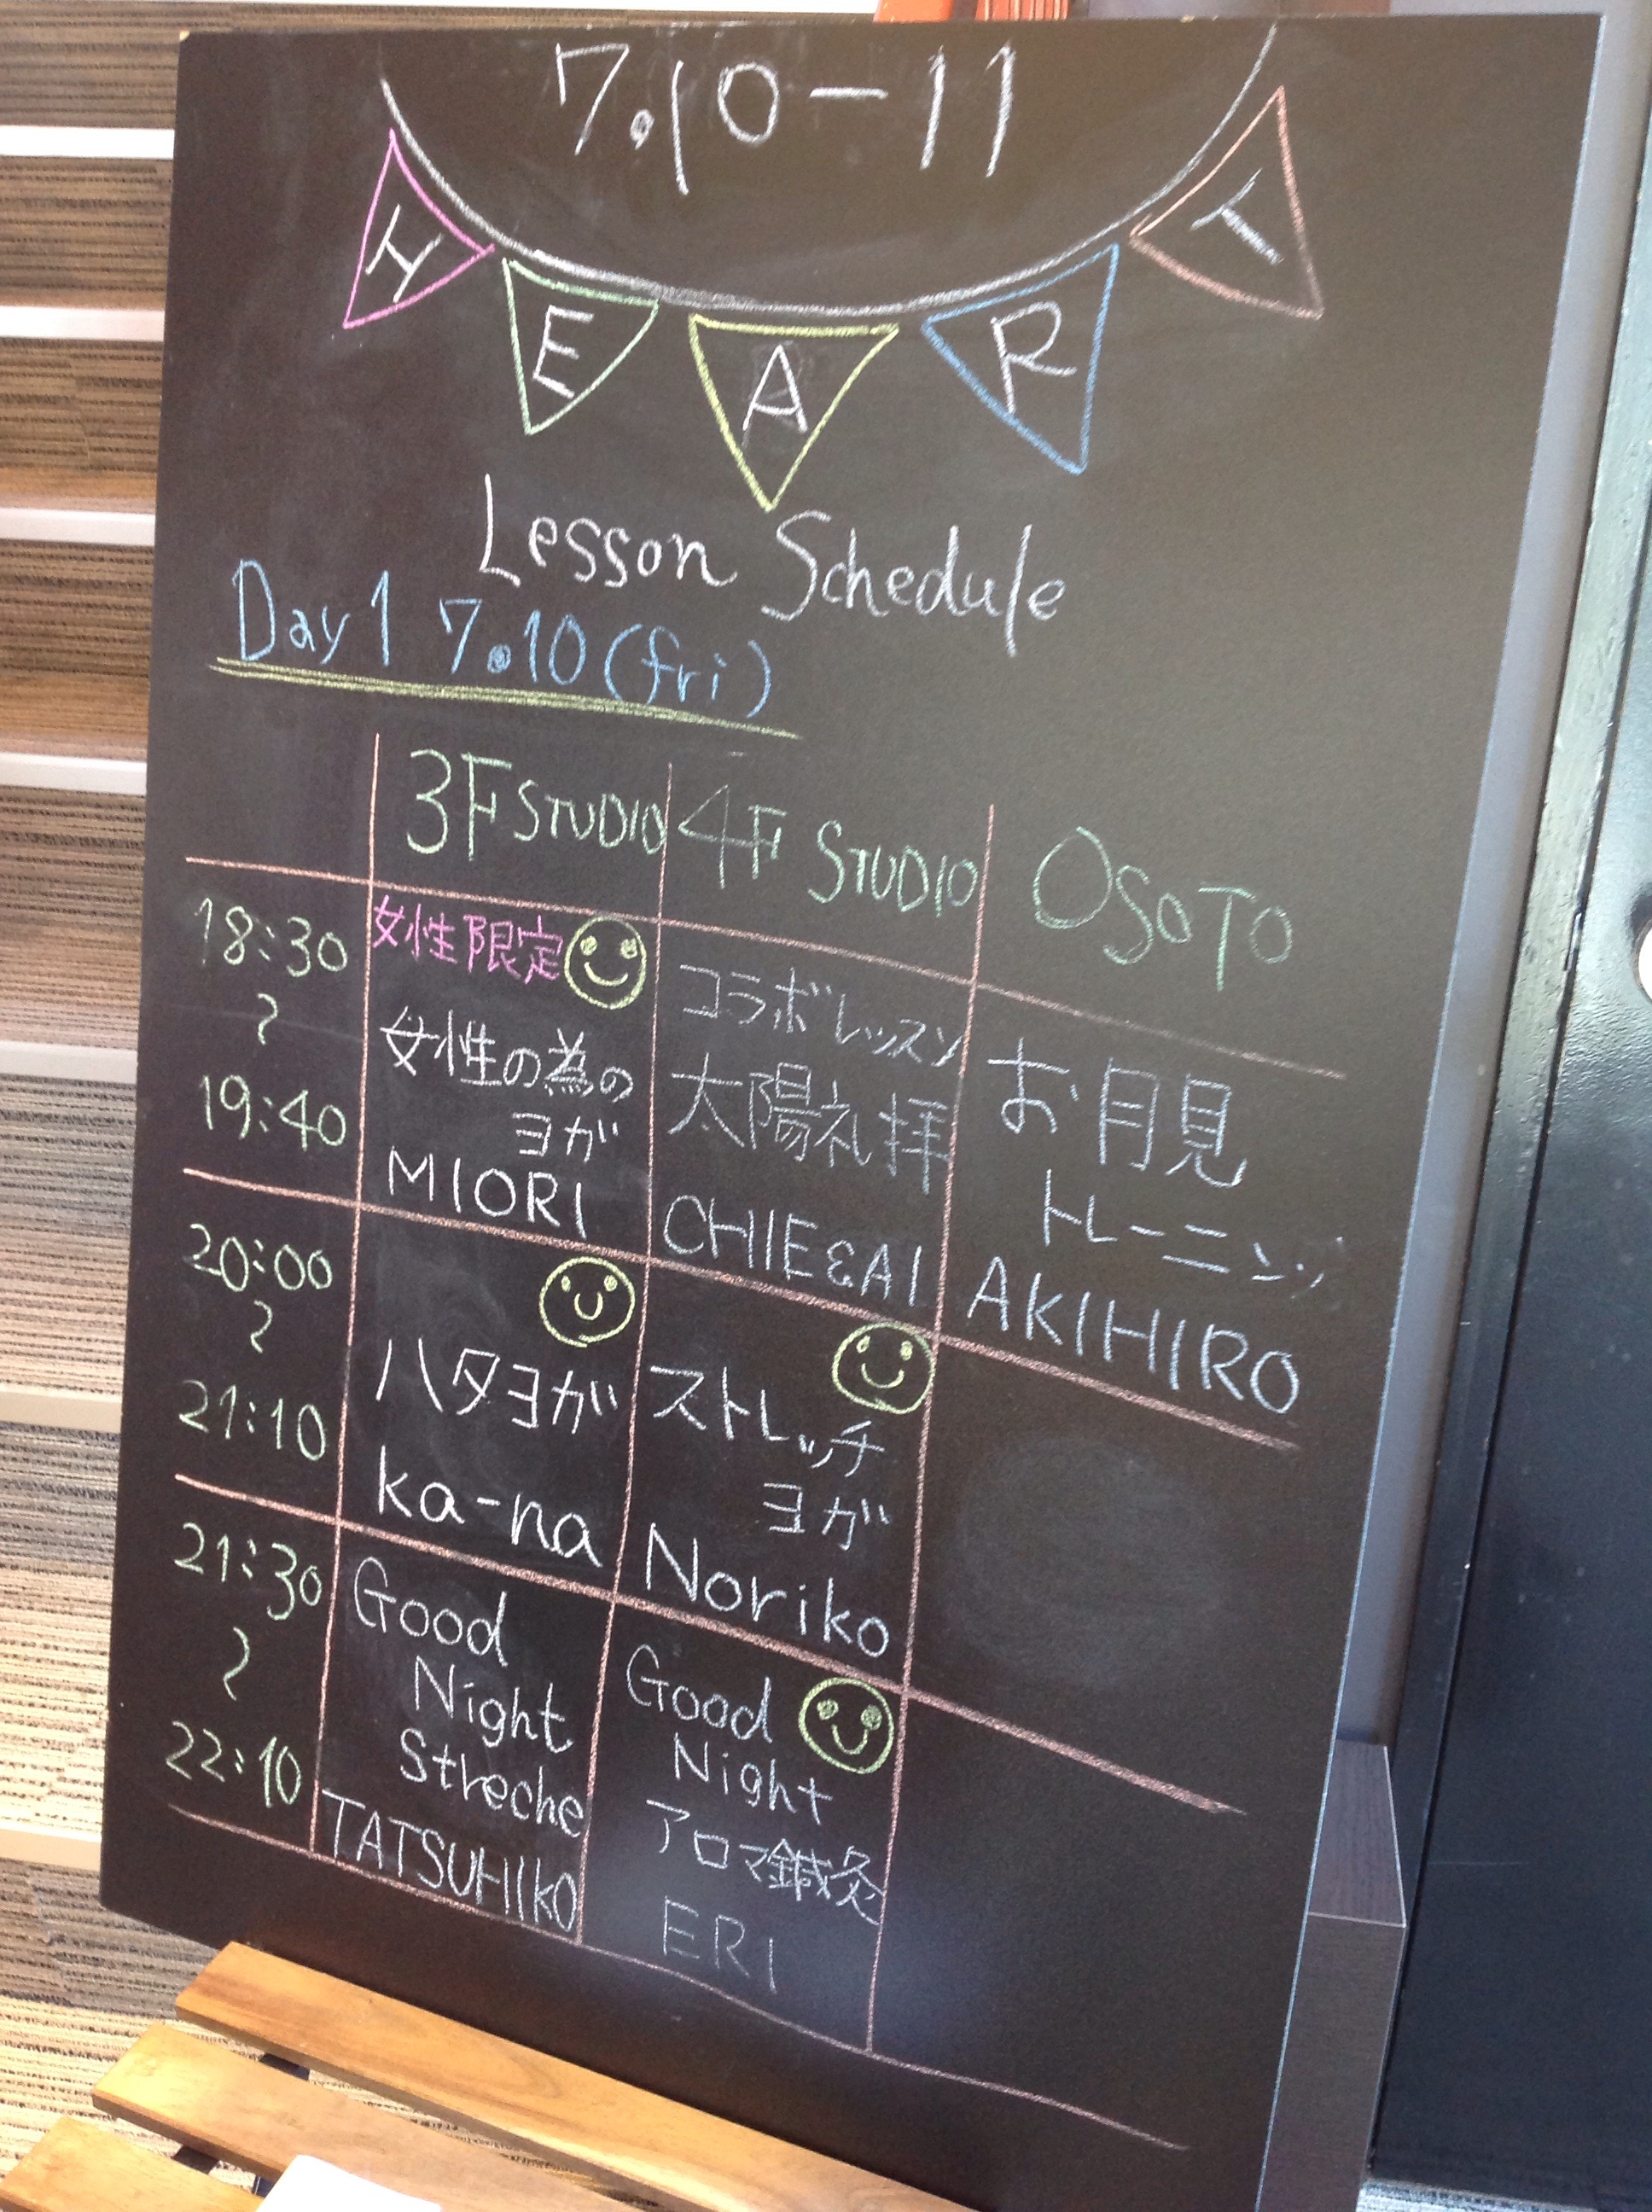 7.10-11
HEART
Lesson Schedule
Day1 7.10(fri)
3F STUDIO 4F STUDIO OSOTO
18:30
~
19:40
女性限定
女性の為の
ヨガ
MIORI
コラボレッスン
太陽礼拝
CHIE&AI
お月見
トレーニング
AKIHIRO
20:00
~
21:10
ハタヨガ
ka-na
ストレッチ
ヨガ
Noriko
21:30
~
22:10
Good
Night
Streche
TATSUHIKO
Good
Night
アロマ鍼灸
ERI